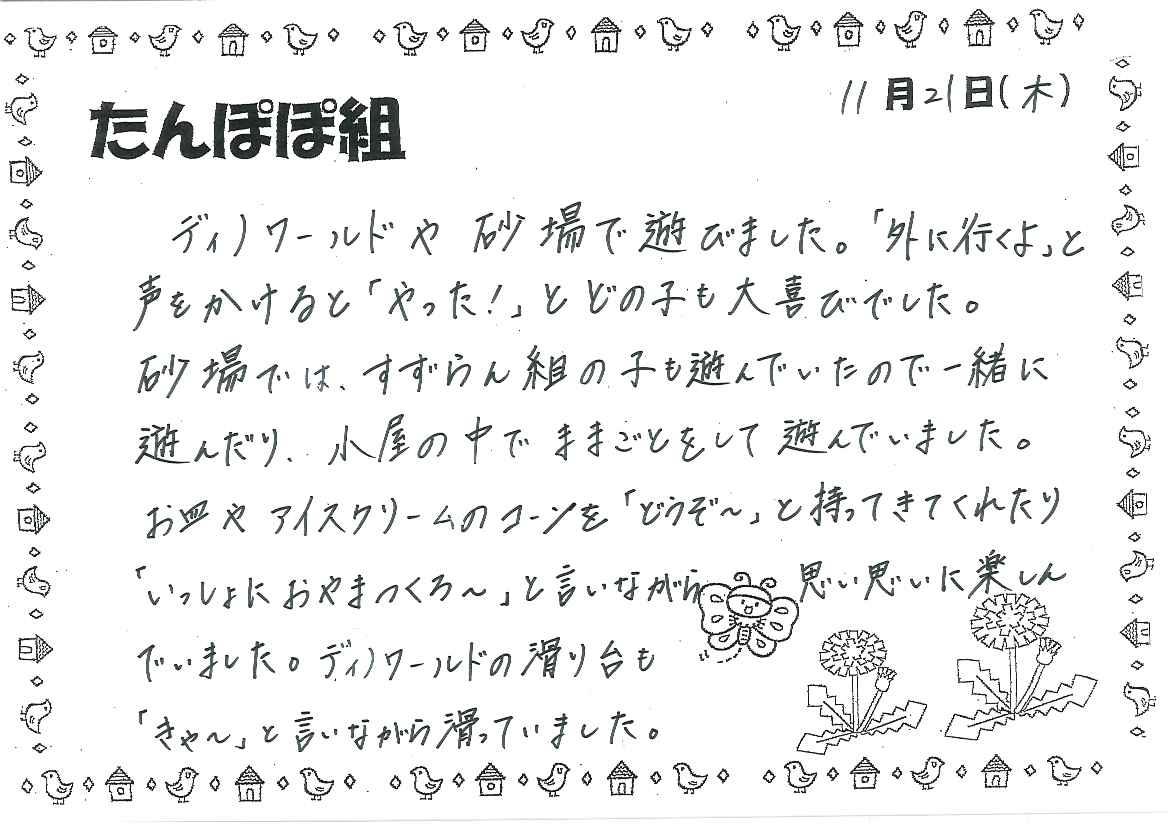 11月21日(木)
たんぽぽ組
ディノワールドや砂場で遊びました。「外に行くよ」と
声をかけると「やった!」とどの子も大喜びでした。
砂場では、すずらん組の子も遊んでいたので一緒に
遊んだり、小屋の中でままごとをして遊んでいました。
お皿やアイスクリームのコーンを「どうぞ〜」と持ってきてくれたり
「いっしょにおやまつくろ〜」と言いながら思い思いに楽しん
でいました。ディノワールドの滑り台も
「きゃ〜」と言いながら滑っていました。